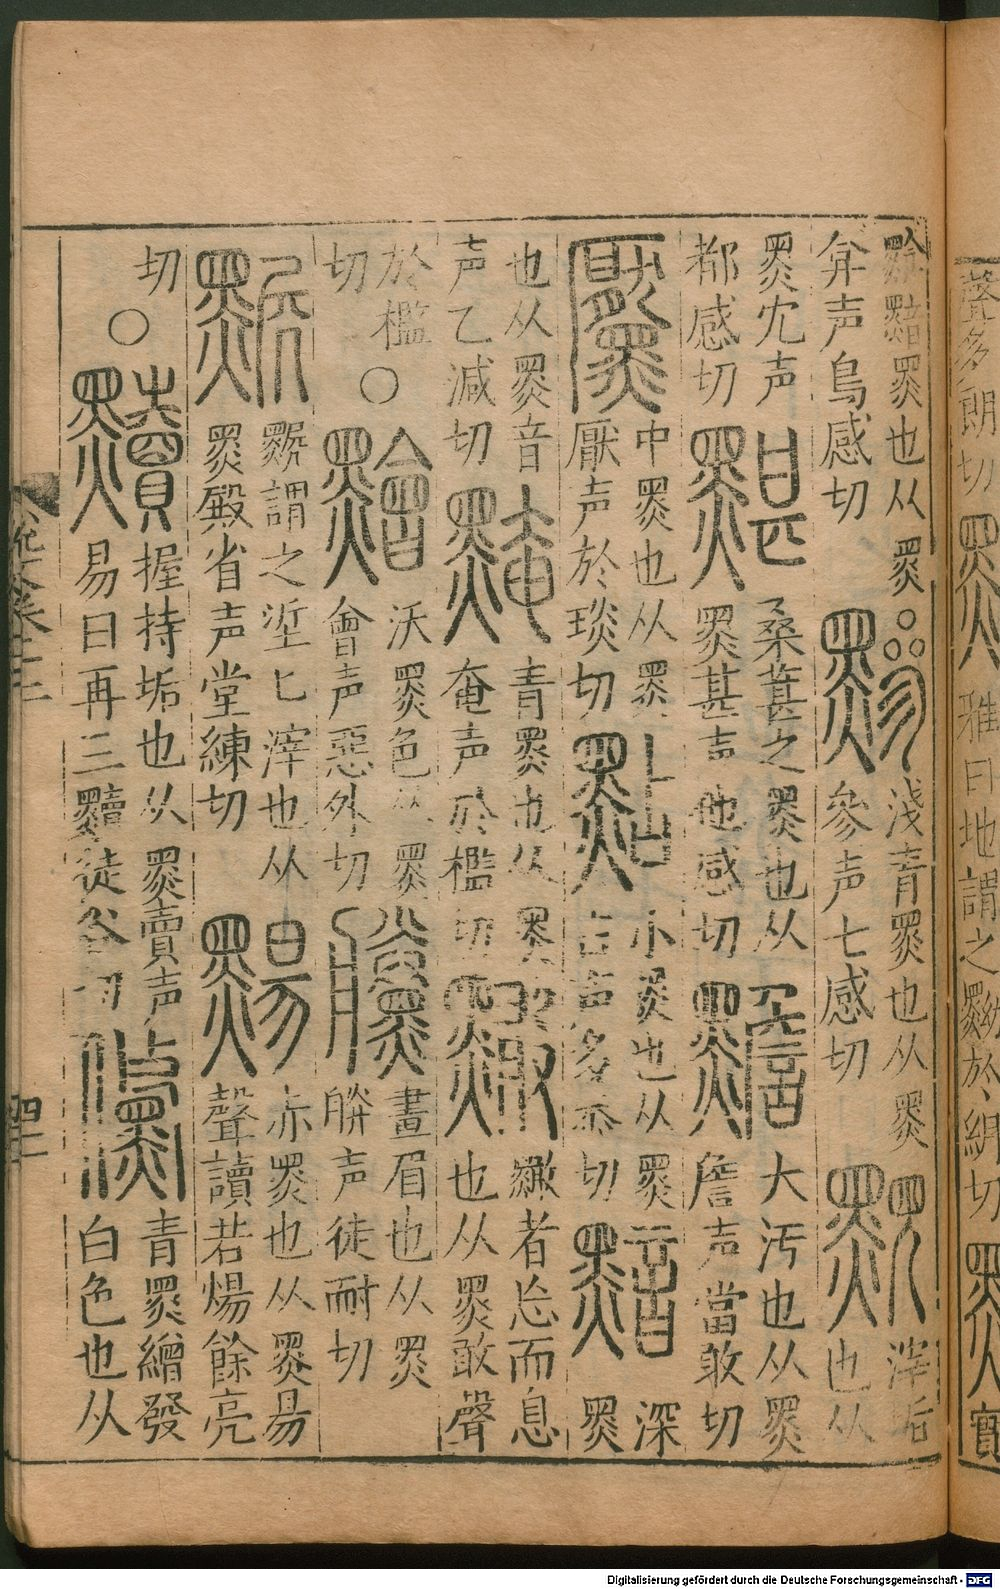 聲多朗切
黝
雅曰地謂之黝於糾切
黑也从黑
弇声烏感切
黲
淺青黑也从黑
參声七感切
黕
滓垢
也从
黑冘声
都感切
黮
桑葚之黑也从
黑甚声他感切
黵
大汚也从黑
詹声當敢切
黶
中黑也从黑
厭声於琰切
點
小黑也从黑
占声多忝切
黯
深
黑
也从黑音
声乙減切
黤
青黑也从黑
奄声於檻切
䵎者忘而息
也从黑敢聲
於檻
切
○
黵
沃黑色从黑
會声惡外切
黱
畫眉也从黑
朕声徒耐切
謂之垽
滓也从
黑殿省声堂練切
赤黑也从黑昜
聲讀若煬餘亮
切
○
黷
握持垢也从黑賣声
易曰再三黷徒谷切
儵
青黑繒發
白色也从
四二
Digitalisierung gefördert durch die Deutsche Forschungsgemeinschaft - DFG